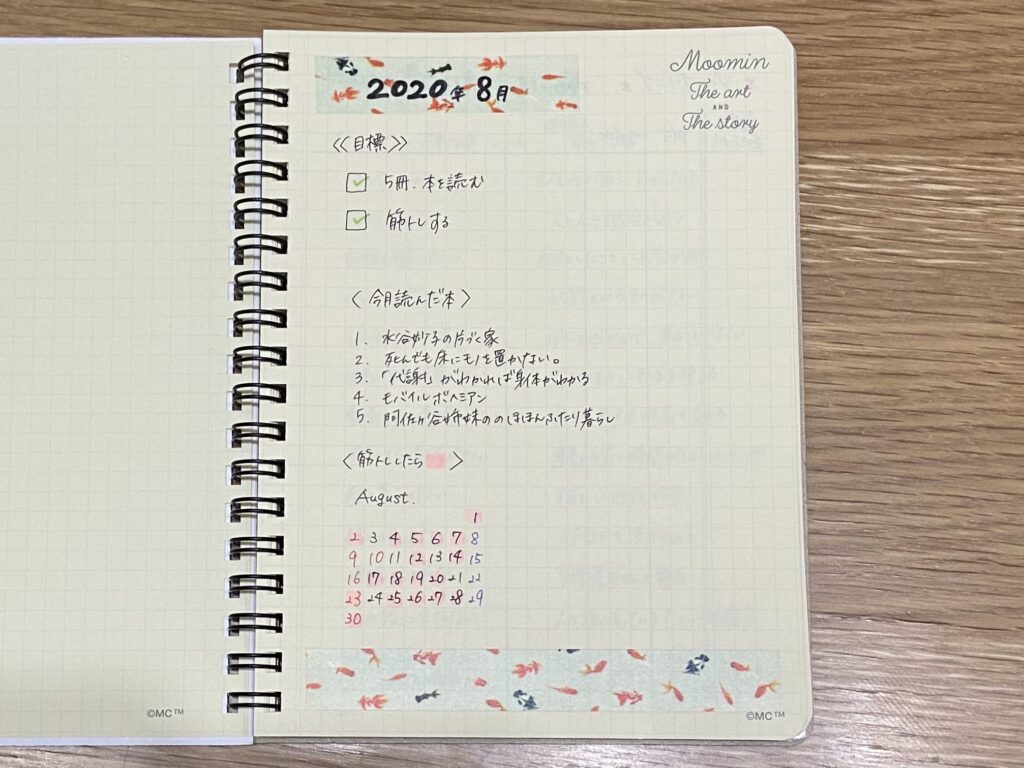 2020年 8月
Moomin
The art
AND
The story
《目標》
5冊、本を読む
筋トレする
〈今月読んだ本〉
1. 水谷妙子の片づく家
2. 死んでも床にモノを置かない。
3. 「代謝」がわかれば身体がわかる
4. モバイルボヘミアン
5. 阿佐ヶ谷姉妹ののほほんふたり暮らし
〈筋トレしたら 〉
August.
1
2 3 4 5 6 7 8
9 10 11 12 13 14 15
16 17 18 19 20 21 22
23 24 25 26 27 28 29
30
©MC™
©MC™